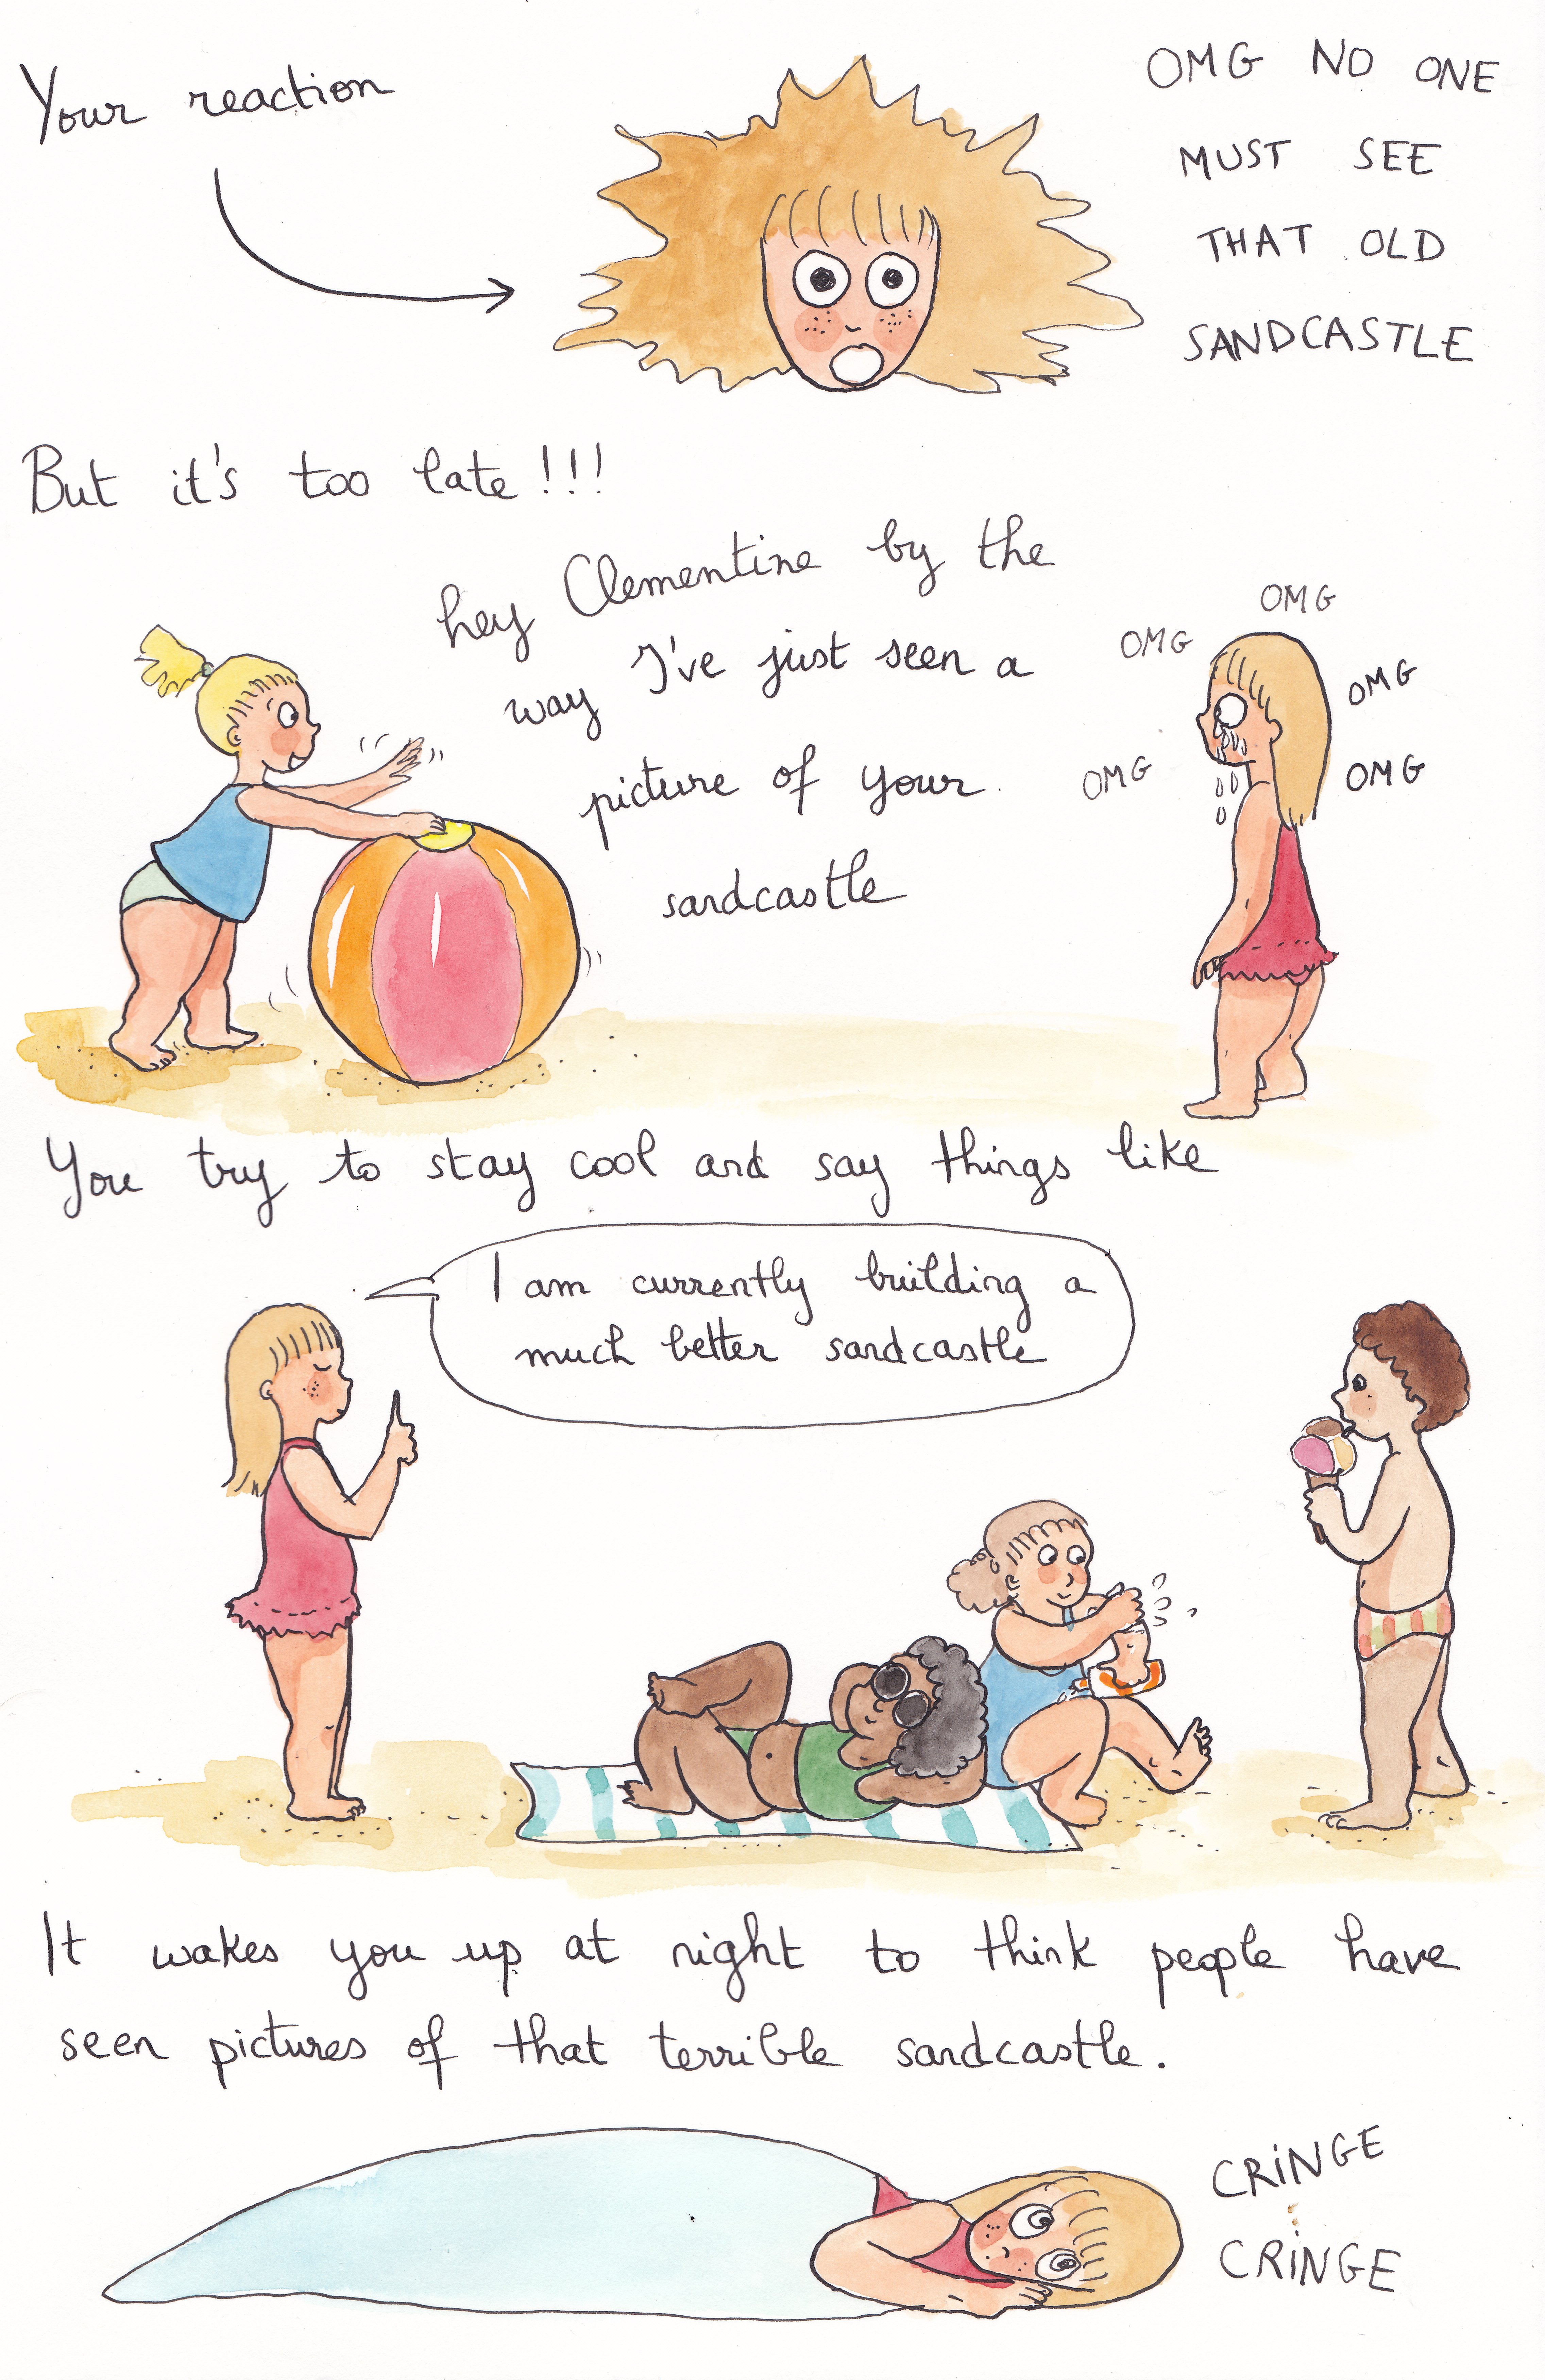 Your reaction
OMG NO ONE
MUST SEE
THAT OLD
SANDCASTLE
But it's too late!!!
hey Clementine by the
way I've just seen a
picture of your
sandcastle
OMG
OMG
OMG
OMG
OMG
You try to stay cool and say things like
I am currently building a
much better sandcastle
It wakes you up at night to think people have
seen pictures of that terrible sandcastle.
CRiNGE
CRiNGE